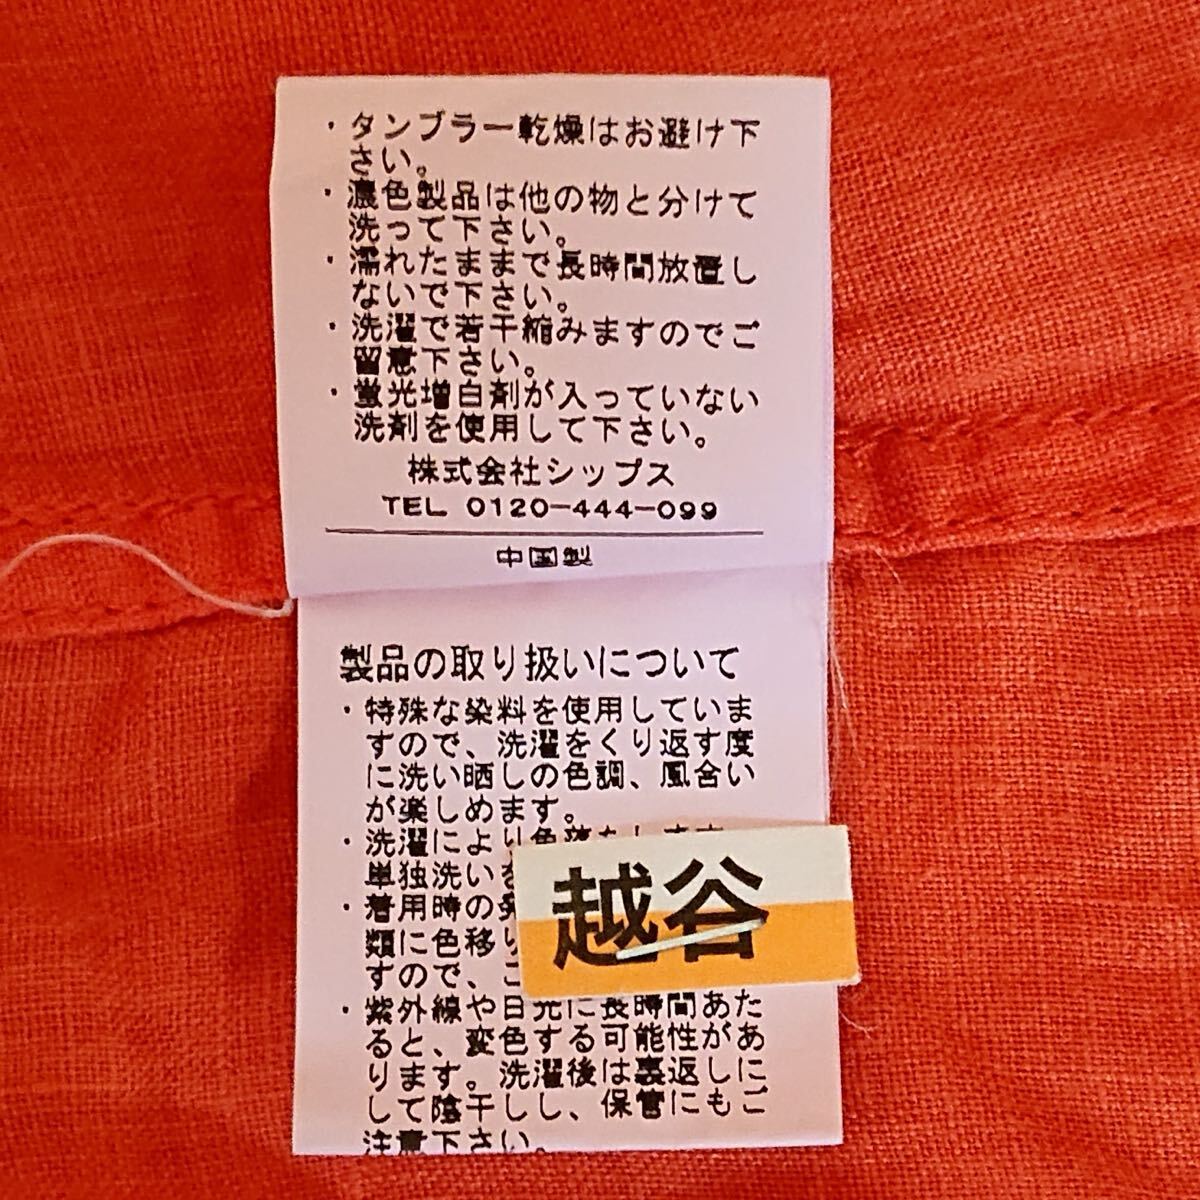 ・タンブラー乾燥はお避け下
さい。
・濃色製品は他の物と分けて
洗って下さい。
・濡れたままで長時間放置し
ないで下さい。
・洗濯で若干縮みますのでご
留意下さい。
・蛍光増白剤が入っていない
洗剤を使用して下さい。
株式会社シップス
TEL 0120-444-099
中国製
製品の取り扱いについて
・特殊な染料を使用していま
すので、洗濯をくり返す度
に洗い晒しの色調、風合い
が楽しめます。
・洗濯により色落ちします
単独洗いを
・着用時の
類に色移り
すので、ご
越谷
・紫外線や日光に長時間あた
ると、変色する可能性があ
ります。洗濯後は裏返しに
して陰干しし、保管にもご
注意下さい。